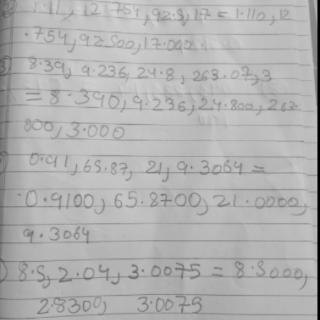 1.11, 12.754, 92.5, 17 = 1.110, 12
.754, 92.500, 17.000
8.39, 9.236, 24.8, 263.07, 3
= 8.390, 9.236, 24.800, 263
3.000
0.91, 65.87, 21, 9.3064 =
0.9100, 65.8700, 21.0000,
9.3064
8.5, 2.04, 3.0075 = 8.5000,
2.8300, 3.0075